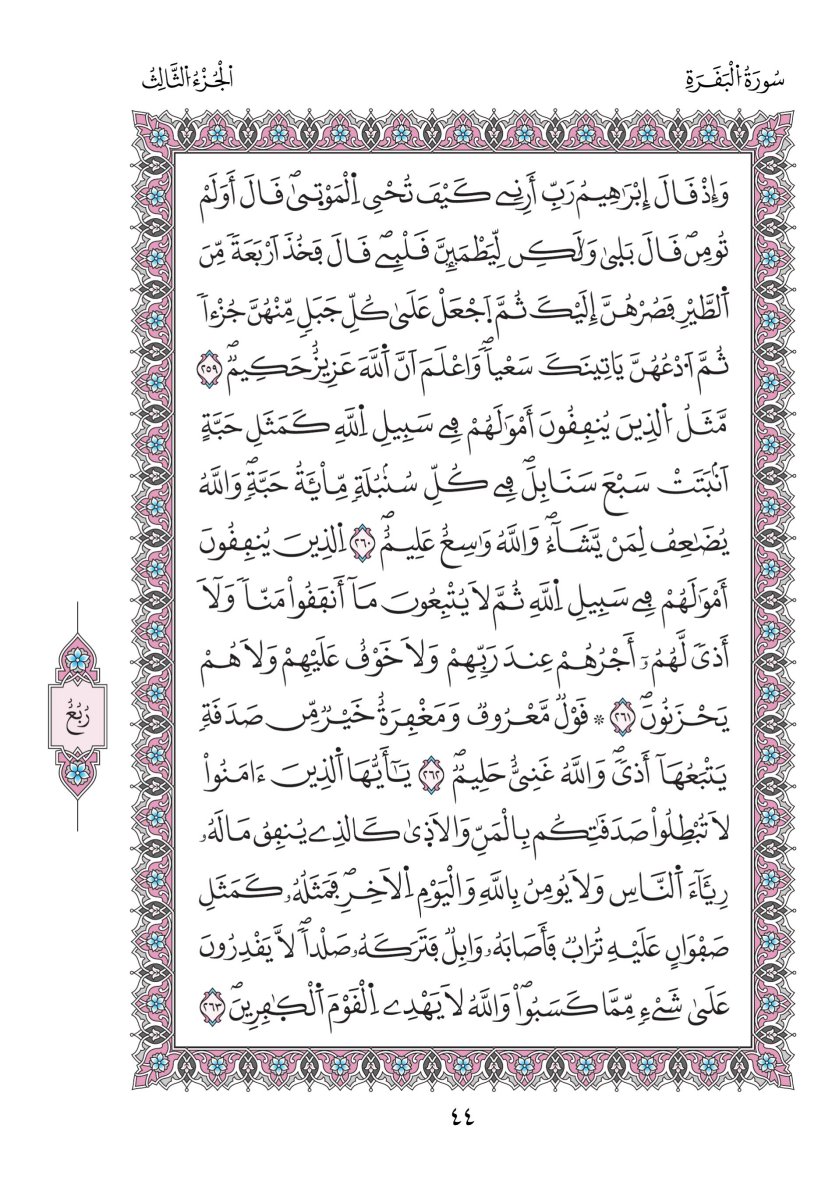 سُورَةُ اُ۬لْبَقَرَةِ
اُ۬لْجُزْءُ اُ۬لثَّالِثُ
وَإِذْ قَالَ إِبْرَٰهِيمُ رَبِّ أَرِنِے كَيْفَ تُحْيِ اِ۬لْمَوْت۪يٰۖ قَالَ أَوَلَمْ
تُومِنۖ قَالَ بَل۪يٰ وَلَٰكِن لِّيَطْمَئِنَّ قَلْبِےۖ قَالَ فَخُذَ اَرْبَعَةٗ مِّنَ
اَ۬لطَّيْرِ فَصُرْهُنَّ إِلَيْكَ ثُمَّ اَ۪جْعَلْ عَلَيٰ كُلِّ جَبَلٖ مِّنْهُنَّ جُزْءاٗ
ثُمَّ اَ۟دْعُهُنَّ يَاتِينَكَ سَعْياٗۖ وَاعْلَمَ اَنَّ اَ۬للَّهَ عَزِيزٌ حَكِيمٞۖ ٢٥٩
مَّثَلُ اُ۬لذِينَ يُنفِقُونَ أَمْوَٰلَهُمْ فِے سَبِيلِ اِ۬للَّهِ كَمَثَلِ حَبَّةٍ
اَنۢبَتَتْ سَبْعَ سَنَابِلَۖ فِے كُلِّ سُنۢبُلَةٖ مِّاْئَةُ حَبَّةٖۖ وَاللَّهُ
يُضَٰعِفُ لِمَنْ يَّشَآءُۖ وَاللَّهُ وَٰسِعٌ عَلِيمٌۖ ٢٦٠ اِ۬لذِينَ يُنفِقُونَ
أَمْوَٰلَهُمْ فِے سَبِيلِ اِ۬للَّهِ ثُمَّ لَا يُتْبِعُونَ مَآ أَنفَقُواْ مَنّاٗ وَلَآ
أَذيٗ لَّهُمُۥٓ أَجْرُهُمْ عِندَ رَبِّهِمْ وَلَا خَوْفٌ عَلَيْهِمْ وَلَا هُمْ
يَحْزَنُونَۖ ٢٦١ ۞ قَوْلٞ مَّعْرُوفٞ وَمَغْفِرَةٌ خَيْرٞ مِّن صَدَقَةٖ
يَتْبَعُهَآ أَذيٗۖ وَاللَّهُ غَنِيٌّ حَلِيمٞۖ ٢٦٢ يَٰٓأَيُّهَا اَ۬لذِينَ ءَامَنُواْ
لَا تُبْطِلُواْ صَدَقَٰتِكُم بِالْمَنِّ وَالَاذ۪يٰ كَالذِے يُنفِقُ مَالَهُۥ
رِئَآءَ اَ۬لنَّاسِ وَلَا يُومِنُ بِاللَّهِ وَالْيَوْمِ اِ۬لَاخِرِۖ فَمَثَلُهُۥ كَمَثَلِ
صَفْوَانٍ عَلَيْهِ تُرَابٞ فَأَصَابَهُۥ وَابِلٞ فَتَرَكَهُۥ صَلْداٗۖ لَّا يَقْدِرُونَ
عَلَيٰ شَےْءٖ مِّمَّا كَسَبُواْۖ وَاللَّهُ لَا يَهْدِے اِ۬لْقَوْمَ اَ۬لْكٰ۪فِرِينَۖ ٢٦٣
رُبُعُ
٤٤